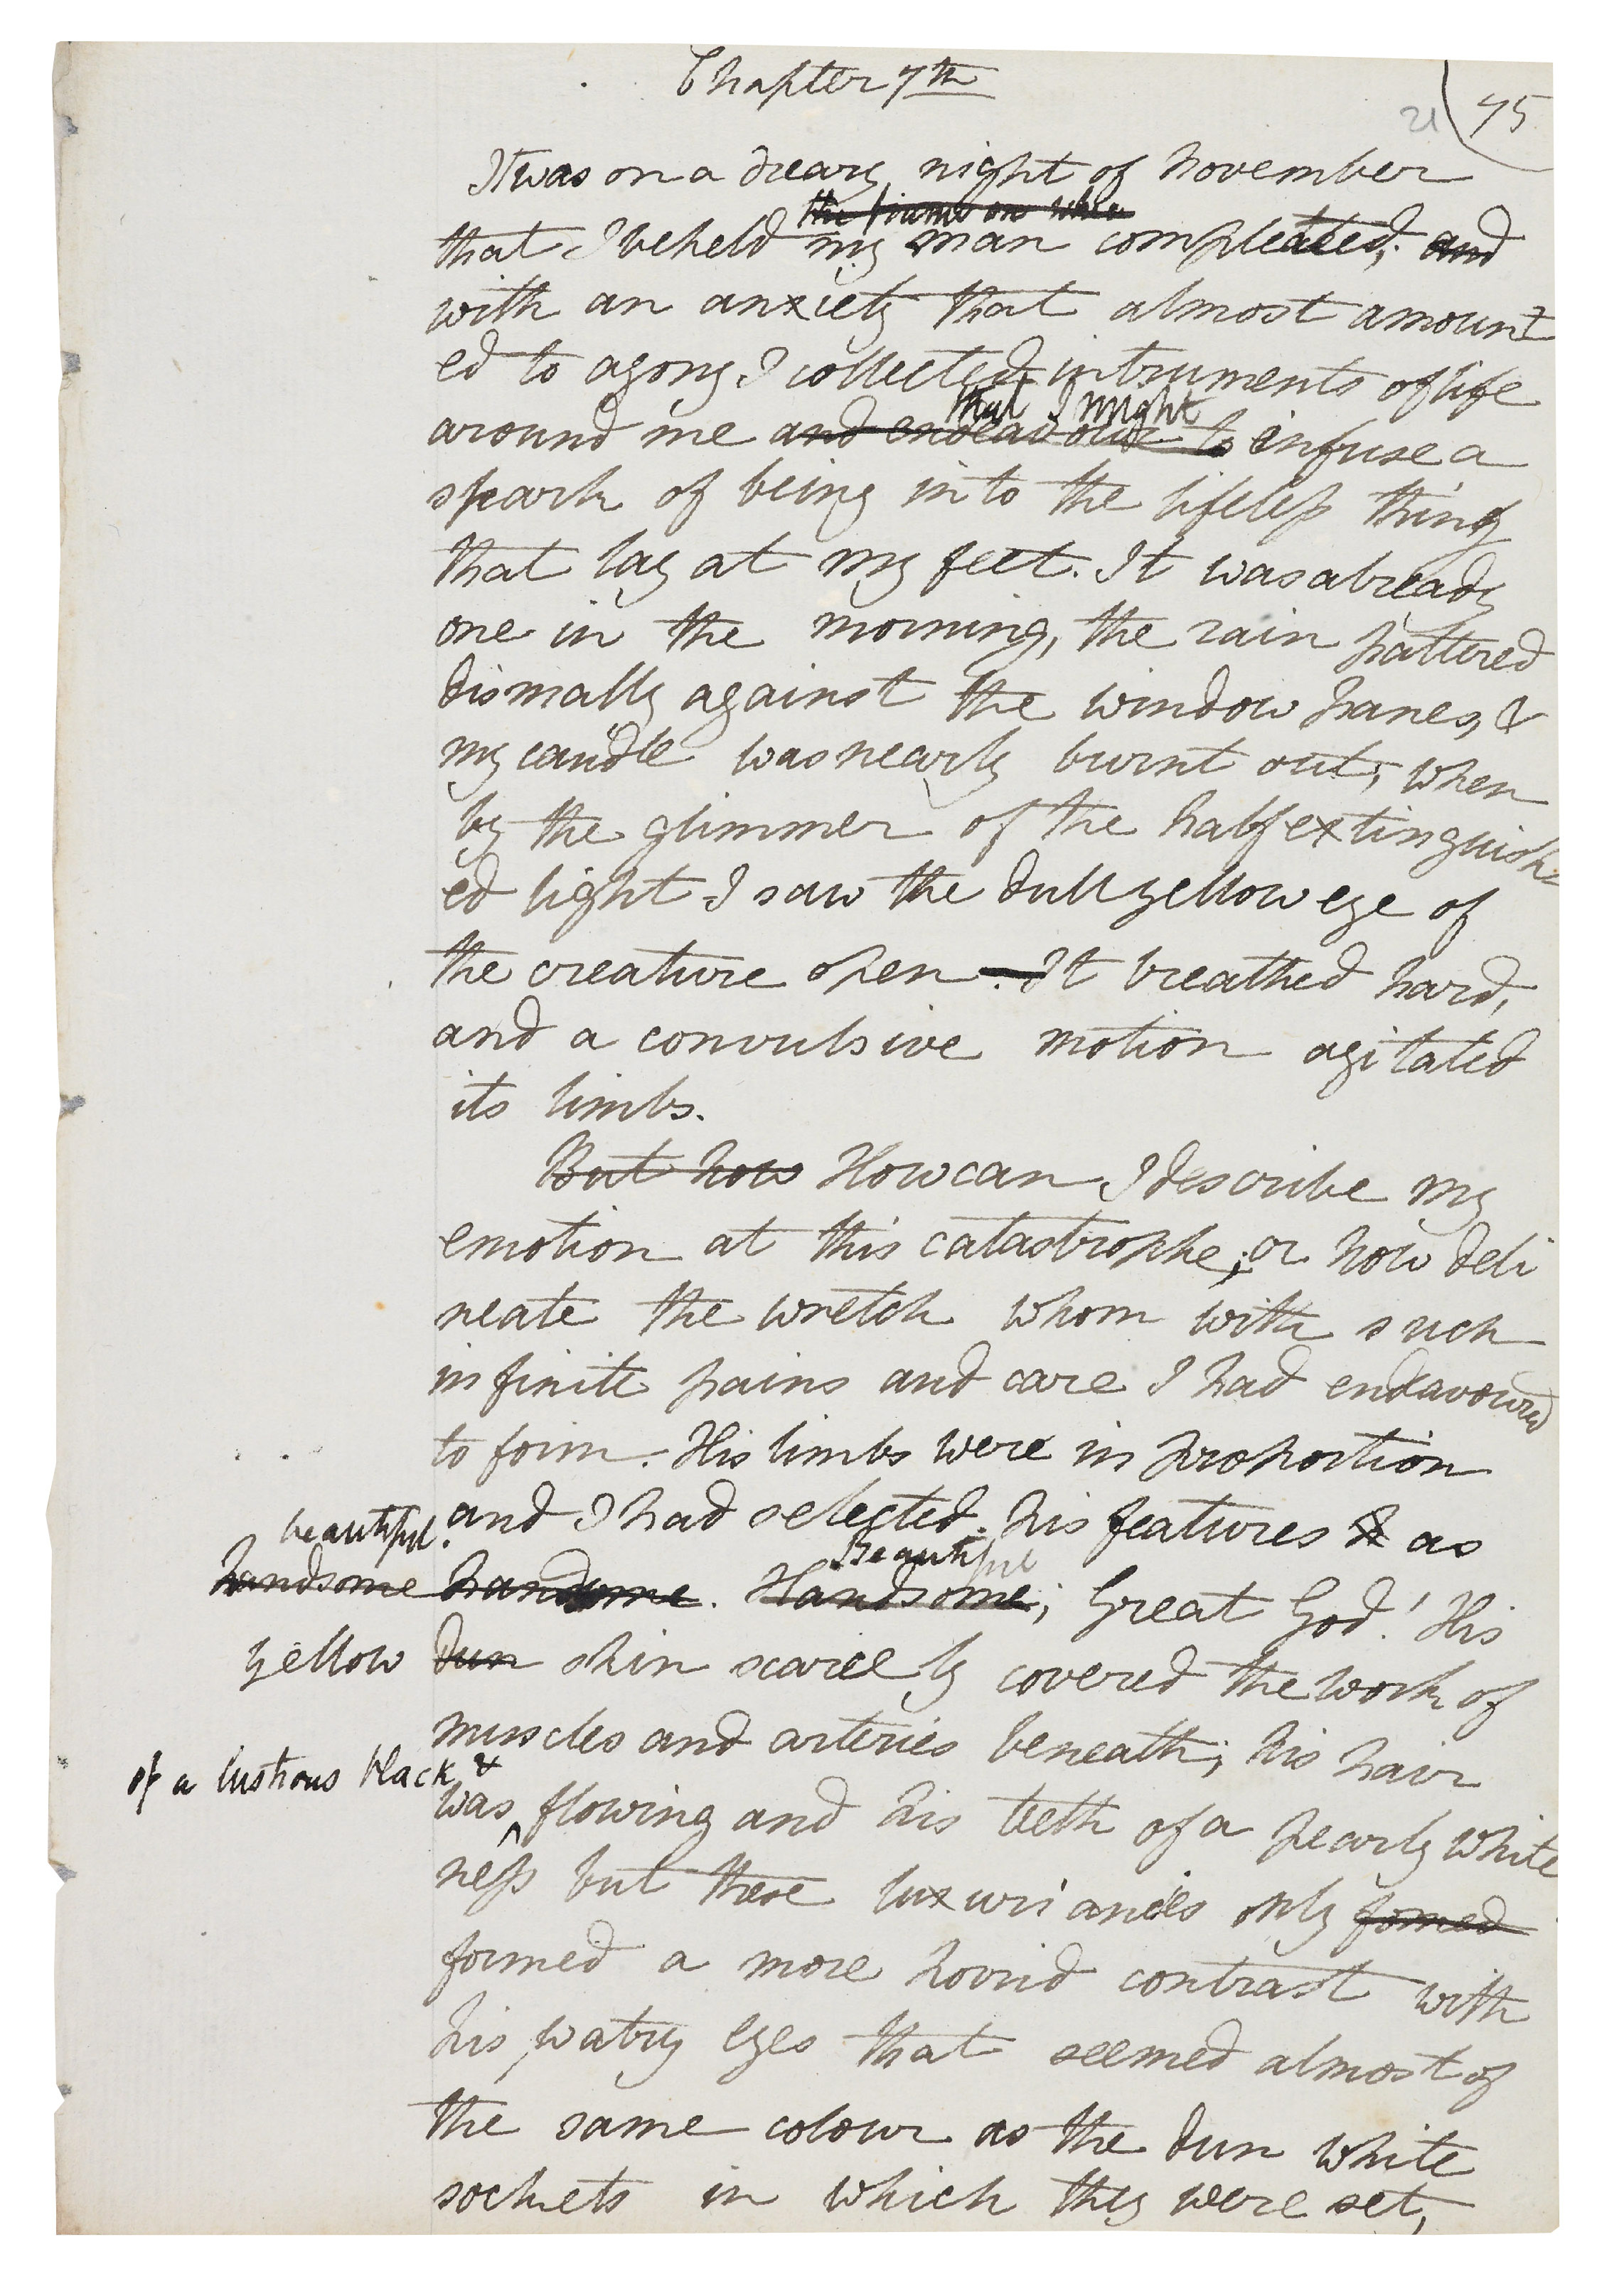 Chapter 7th
21 75
It was on a dreary night of November
the frame on whic
that I beheld my man compleated; and
with an anxiety that almost amount
ed to agony I collected instruments of life
that I might
around me and endeavour to infuse a
spark of being into the lifeless thing
that lay at my feet. It was already
one in the morning, the rain pattered
dismally against the window panes, &
my candle was nearly burnt out, when
by the glimmer of the half extinguish-
ed light I saw the dull yellow eye of
the creature open. It breathed hard,
and a convulsive motion agitated
its limbs.
But how How can I describe my
emotion at this catastrophe; or how deli
neate the wretch whom with such
infinite pains and care I had endavoured
to form. His limbs were in proportion
and I had selected his features as
beautiful.
handsome handsome. Handsome; Great God! His
Beautiful
yellow dun skin scarcely covered the work of
muscles and arteries beneath; his hair
of a lustrous black &
was flowing and his teeth of a pearly white
ness but these luxuriances only formed
formed a more horrid contrast with
his watry eyes that seemed almost of
the same colour as the dun white
sockets in which they were set,